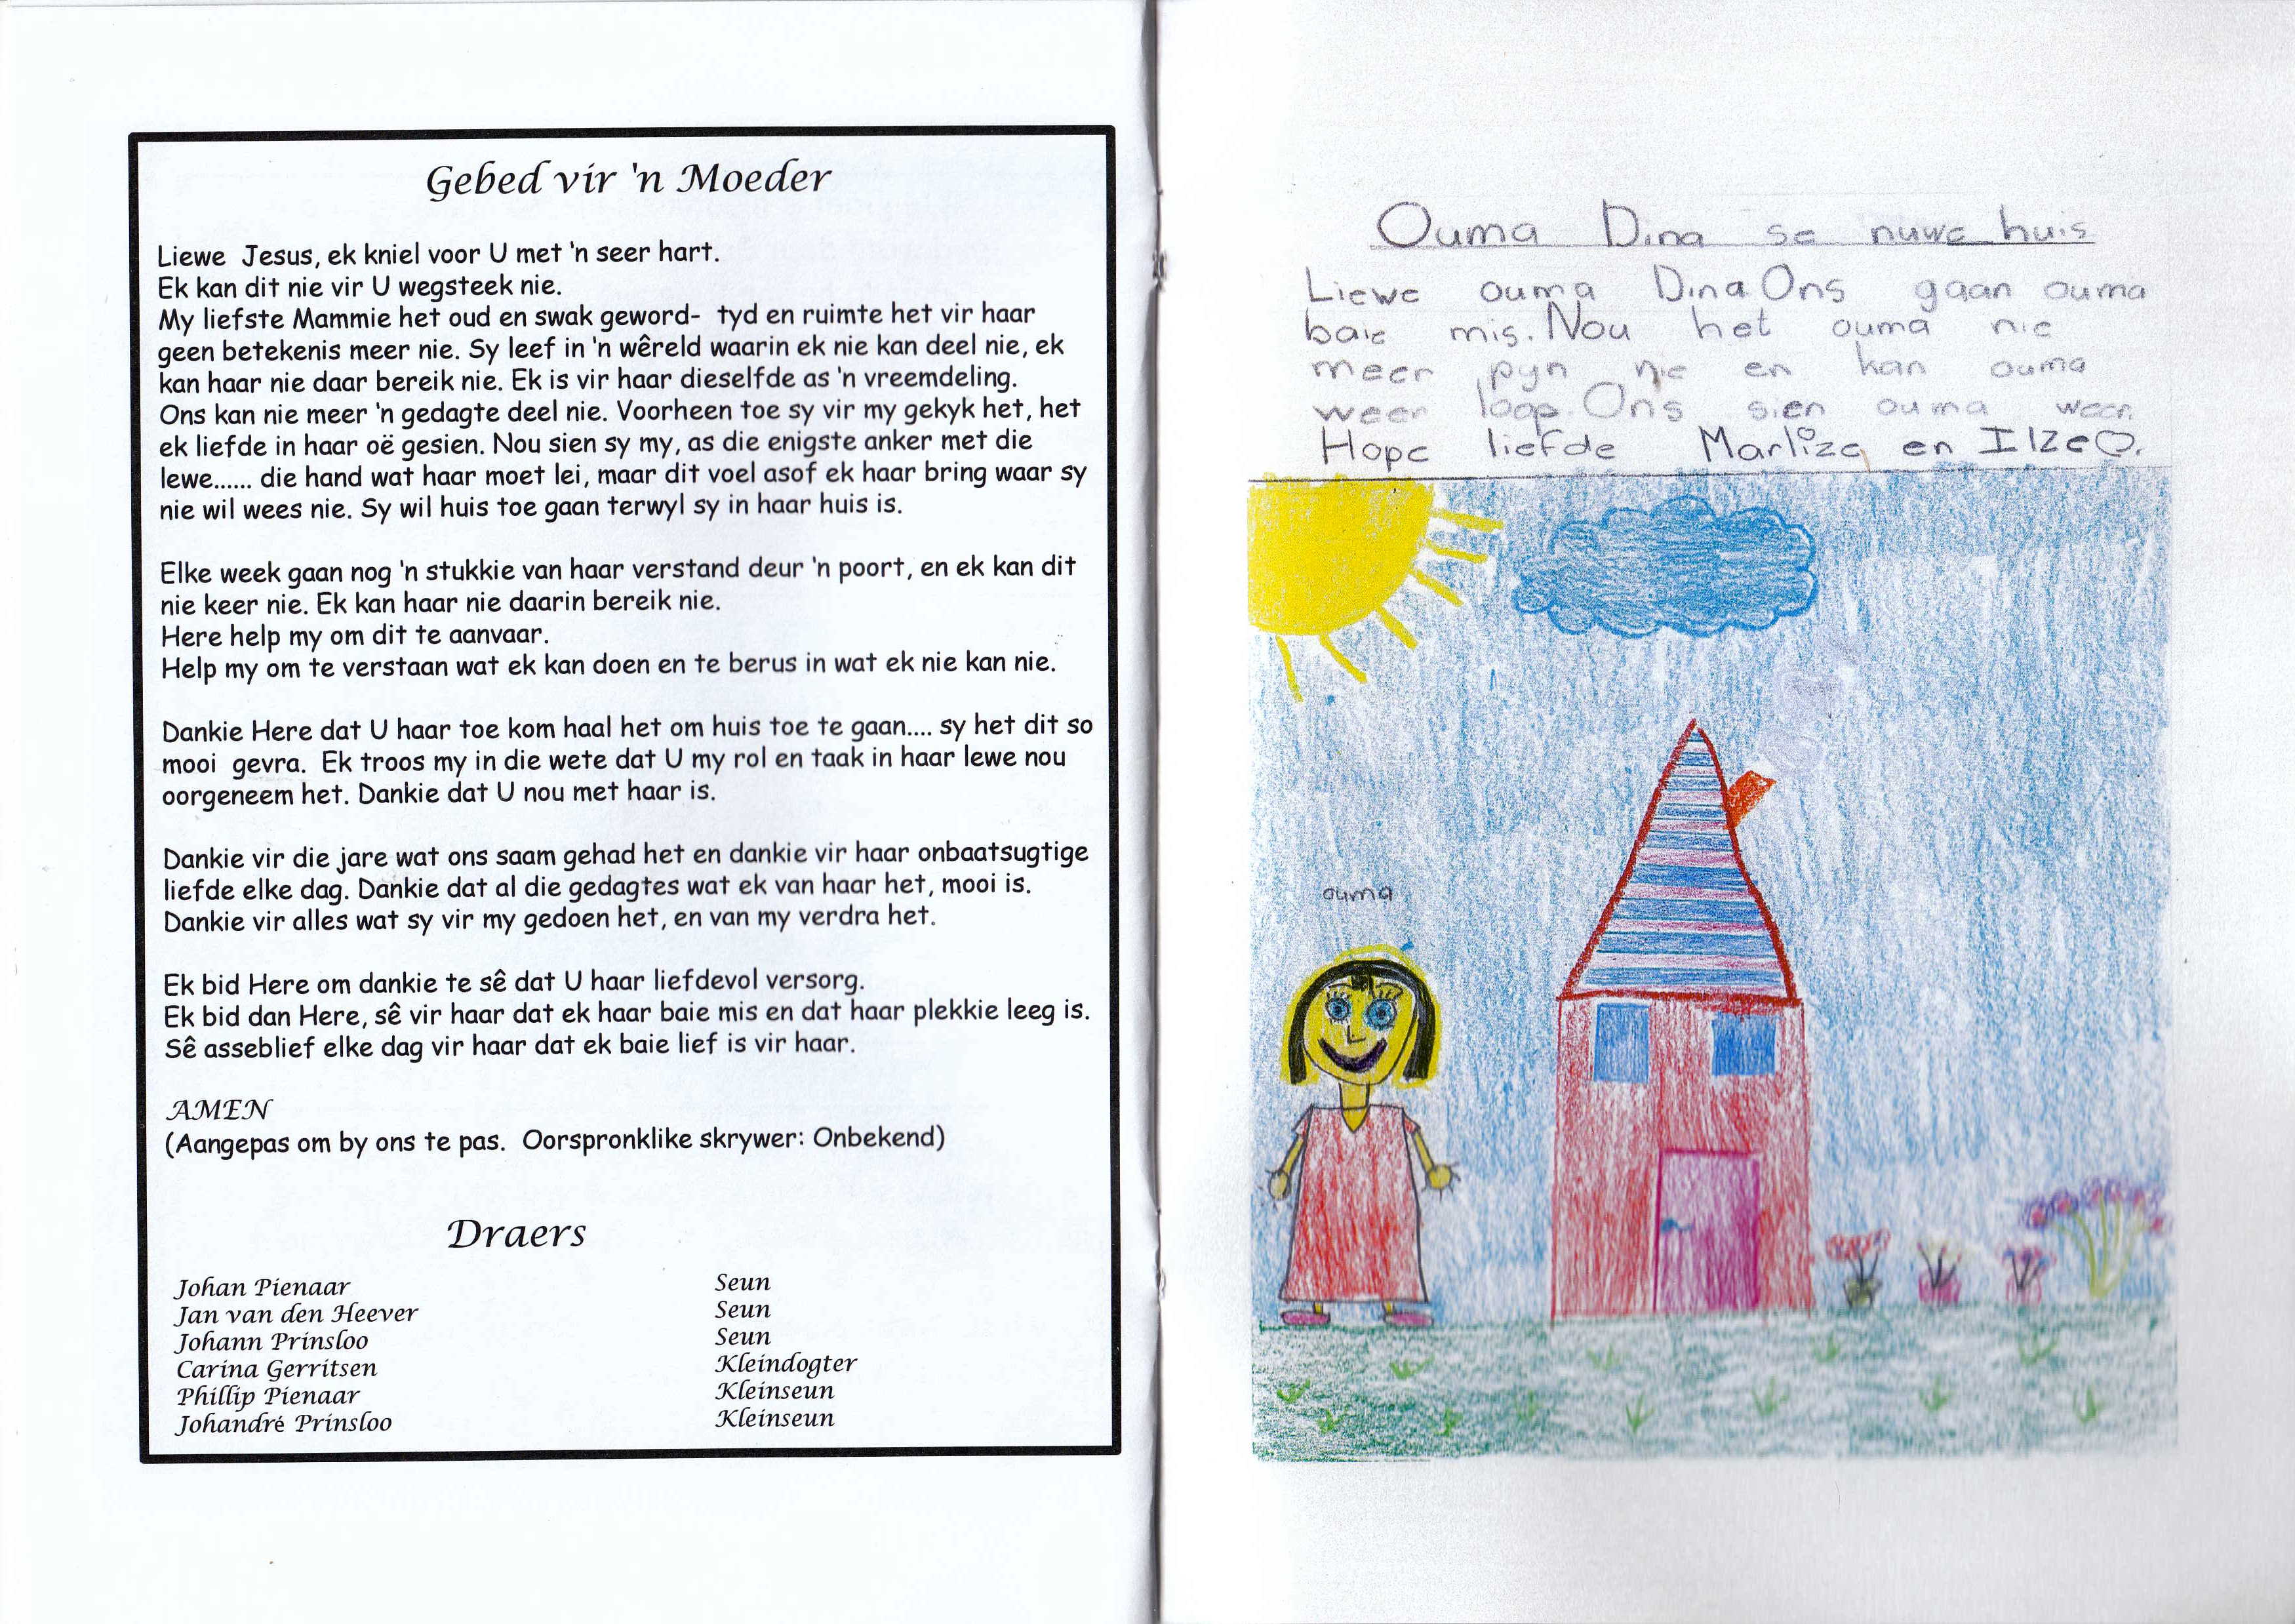 Gebed vir 'n Moeder
Liewe Jesus, ek kniel voor U met 'n seer hart.
Ek kan dit nie vir U wegsteek nie.
My liefste Mammie het oud en swak geword- tyd en ruimte het vir haar
geen betekenis meer nie. Sy leef in 'n wêreld waarin ek nie kan deel nie, ek
kan haar nie daar bereik nie. Ek is vir haar dieselfde as 'n vreemdeling.
Ons kan nie meer 'n gedagte deel nie. Voorheen toe sy vir my gekyk het, het
ek liefde in haar oë gesien. Nou sien sy my, as die enigste anker met die
lewe...... die hand wat haar moet lei, maar dit voel asof ek haar bring waar sy
nie wil wees nie. Sy wil huis toe gaan terwyl sy in haar huis is.
Elke week gaan nog 'n stukkie van haar verstand deur 'n poort, en ek kan dit
nie keer nie. Ek kan haar nie daarin bereik nie.
Here help my om dit te aanvaar.
Help my om te verstaan wat ek kan doen en te berus in wat ek nie kan nie.
Dankie Here dat U haar toe kom haal het om huis toe te gaan.... sy het dit so
mooi gevra. Ek troos my in die wete dat U my rol en taak in haar lewe nou
oorgeneem het. Dankie dat U nou met haar is.
Dankie vir die jare wat ons saam gehad het en dankie vir haar onbaatsugtige
liefde elke dag. Dankie dat al die gedagtes wat ek van haar het, mooi is.
Dankie vir alles wat sy vir my gedoen het, en van my verdra het.
Ek bid Here om dankie te sê dat U haar liefdevol versorg.
Ek bid dan Here, sê vir haar dat ek haar baie mis en dat haar plekkie leeg is.
Sê asseblief elke dag vir haar dat ek baie lief is vir haar.
AMEN
(Aangepas om by ons te pas. Oorspronklike skrywer: Onbekend)
Draers
Johan Pienaar Seun
Jan van den Heever Seun
Johann Prinsloo Seun
Carina Gerritsen Kleindogter
Phillip Pienaar Kleinseun
Johandré Prinsloo Kleinseun
Ouma Dina se nuwe huis
Liewe ouma Dina. Ons gaan ouma
baie mis. Nou het ouma nie
meer pyn nie en kan ouma
weer loop. Ons sien ouma weer.
Hope liefde Marlize en Ilze♡.
ouma